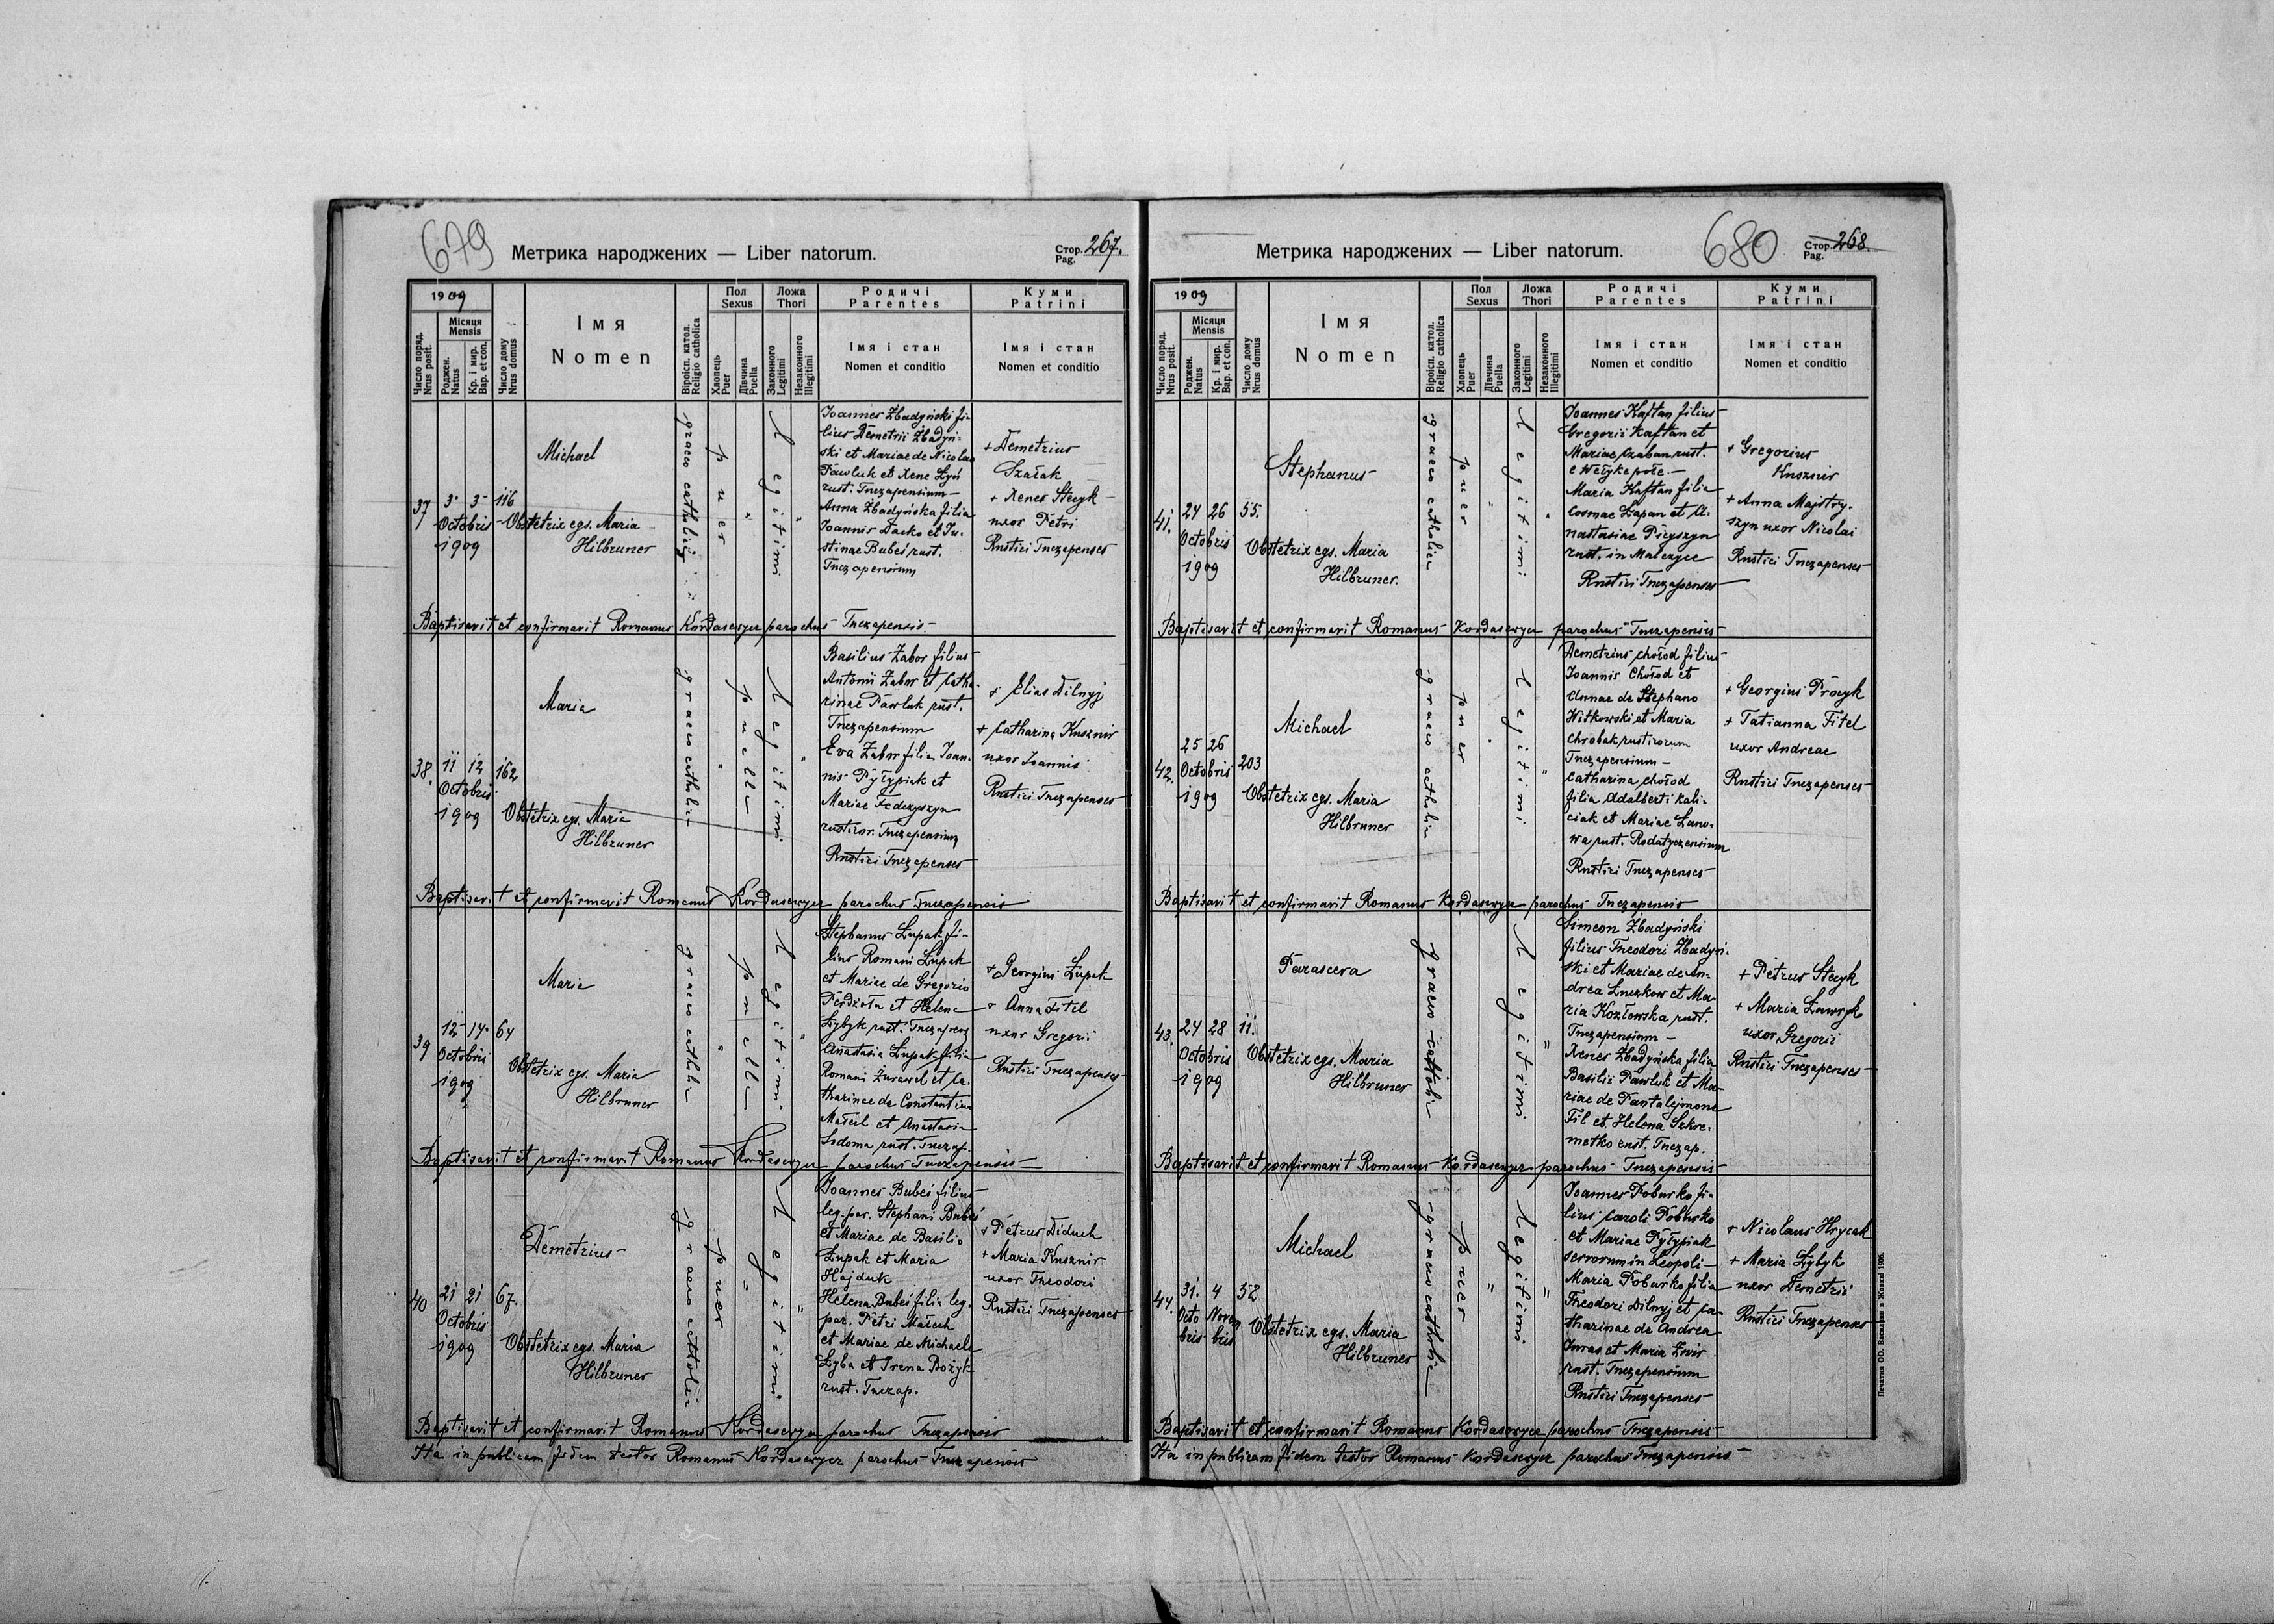 679
Метрика народжених — Liber natorum.
Стор. 267.
Pag.
1909
Число поряд.
Nrus posit.
Місяця
Mensis
Роджен.
Natus
Кр. і мир.
Bap. et con.
Число дому
Nrus domus
Імя
Nomen
Віроісп. катол.
Religio catholica
Пол
Sexus
Хлопець
Puer
Дівчина
Puella
Ложа
Thori
Законного
Legitimi
Незаконного
Illegitimi
Родичі
Parentes
Імя і стан
Nomen et conditio
Куми
Patrini
Імя і стан
Nomen et conditio
37
3 3 116
Octobris
1909
Michael
Obstetrix egs. Maria
Hilbruner
graeco catholica
puer
"
Legitimi
"
Joannes Żbadyński fi-
lius Demetrii Żbadyń-
ski et Mariae de Nicolao
Pawluk et Xene Łyń
rust. Tuczapensium –
Anna Żbadyńska filia
Joannis Dacko et Ju-
stinae Bubeś rust.
Tuczapensium
+ Demetrius
Szałak
+ Xenes Stecyk
uxor Petri
Rustici Tuczapenses
Baptisavit et confirmavit Romanus Kordasewycz parochus Tuczapensis
38.
11 12 162
Octobris
1909
Maria
Obstetrix egs. Maria
Hilbruner
graeco catholica
"
puella
Legitimi
"
Basilius Zabor filius
Antonii Zabor et Catha-
rinae Pawluk rust.
Tuczapensium
Eva Zabor filia Joan-
nis Pyłypiak et
Mariae Fedczyszyn
rusticor. Tuczapensium
Rustici Tuczapenses
+ Elias Dilnyj
+ Catharina Kusznir
uxor Joannis
Rustici Tuczapenses
Baptisavit et confirmavit Romanus Kordasewycz parochus Tuczapensis
39
12 14 64
Octobris
1909
Maria
Obstetrix egs. Maria
Hilbruner
graeco catholica
"
puella
Legitimi
"
Stephanus Łupak fi-
lius Romani Łupak
et Mariae de Gregorio
et Helena
Łybyk rust. Tuczapens
Anastasia Łupak filia
Romani Żurawel et Ca-
tharinae de Constantino
et Anastasia
Sodoma rust. Tuczap.
+ Georgius Łupak
+ Anna Fitel
uxor Gregorii
Rustici Tuczapenses
Baptisavit et confirmavit Romanus Kordasewycz parochus Tuczapensis
40
21 21 67.
Octobris
1909
Demetrius
Obstetrix egs. Maria
Hilbruner
graeco catholica
puer
"
Legitimi
"
Joannes Bubeś filius
leg. par. Stephani Bubeś
et Mariae de Basilio
Łupak et Maria
Hajduk
Helena Bubeś filia leg.
par. Petri
et Mariae de Michaele
Łyba et Irena Bożyk
rust. Tuczap.
+ Petrus Diduch
+ Maria Kusznir
uxor Theodori
Rustici Tuczapenses
Baptisavit et confirmavit Romanus Kordasewycz parochus Tuczapensis
Ita in publicam fidem testor Romanus Kordasewycz parochus Tuczapensis
680
Метрика народжених — Liber natorum.
Стор. 268.
Pag.
1909
Число поряд.
Nrus posit.
Місяця
Mensis
Роджен.
Natus
Кр. і мир.
Bap. et con.
Число дому
Nrus domus
Імя
Nomen
Віроісп. катол.
Religio catholica
Пол
Sexus
Хлопець
Puer
Дівчина
Puella
Ложа
Thori
Законного
Legitimi
Незаконного
Illegitimi
Родичі
Parentes
Імя і стан
Nomen et conditio
Куми
Patrini
Імя і стан
Nomen et conditio
41.
24 26 55.
Octobris
1909
Stephanus
Obstetrix egs. Maria
Hilbruner.
graeco catholica
puer
"
Legitimi
"
Joannes Kaftan filius
Gregorii Kaftan et
Mariae Czaban rust.
e Wełyke połe. –
Maria Kaftan filia
Cosmae Łapan et A-
nastasiae Pryszyn
rust. in Malczyce
Rustici Tuczapenses
+ Gregorius
Kusznir
+ Anna Majstry-
szyn uxor Nicolai
Rustici Tuczapenses
Baptisavit et confirmavit Romanus Kordasewycz parochus Tuczapensis
42.
25 26 203
Octobris
1909
Michael
Obstetrix egs. Maria
Hilbruner
graeco catholica
puer
"
Legitimi
"
Demetrius Chołod filius
Joannis Chołod et
Annae de Stephano
Witkowski et Maria
Chrobak rusticorum
Tuczapensium –
Catharina Chołod
filia Adalberti Kali-
ciak et Mariae Łano-
wa rust. Rodatyczensium
Rustici Tuczapenses
+ Georgius Procyk
+ Tatianna Fitel
uxor Andreae
Rustici Tuczapenses
Baptisavit et confirmavit Romanus Kordasewycz parochus Tuczapensis
43.
24 28 11.
Octobris
1909
Parasceva
Obstetrix egs. Maria
Hilbruner
graeco catholica
Legitimi
"
Simeon Żbadyński
filius Theodori Żbadyń-
ski et Mariae de An-
drea Łuczkow et Ma-
ria Kozłowska rust.
Tuczapensium –
Xenes Żbadyńska filia
Basilii Pawluk et Ma-
riae de Pantalejmone
Fil et Helena Szkre-
metko rust. Tuczap.
+ Petrus Stecyk
+ Maria Ławryk
uxor Gregorii
Rustici Tuczapenses
Baptisavit et confirmavit Romanus Kordasewycz parochus Tuczapensis
44.
31. 4 52
Octo Novem
bris bris
Michael
Obstetrix egs. Maria
Hilbruner
graeco catholica
puer
"
Legitimi
"
Joannes Poburko fi-
lius Caroli Poburko
et Mariae Pyłypiak
servorum in Leopoli –
Maria Poburko filia
Theodori Dilnyj et Ca-
tharinae de Andrea
Juras et Maria Żwir
rust. Tuczapensium
Rustici Tuczapenses
+ Nicolaus Hrycak
+ Maria Łybyk
uxor Demetrii
Rustici Tuczapenses
Baptisavit et confirmavit Romanus Kordasewycz parochus Tuczapensis
Ita in publicam fidem testor Romanus Kordasewycz parochus Tuczapensis
Печатня ОО. Василиян в Жовкві 1906.